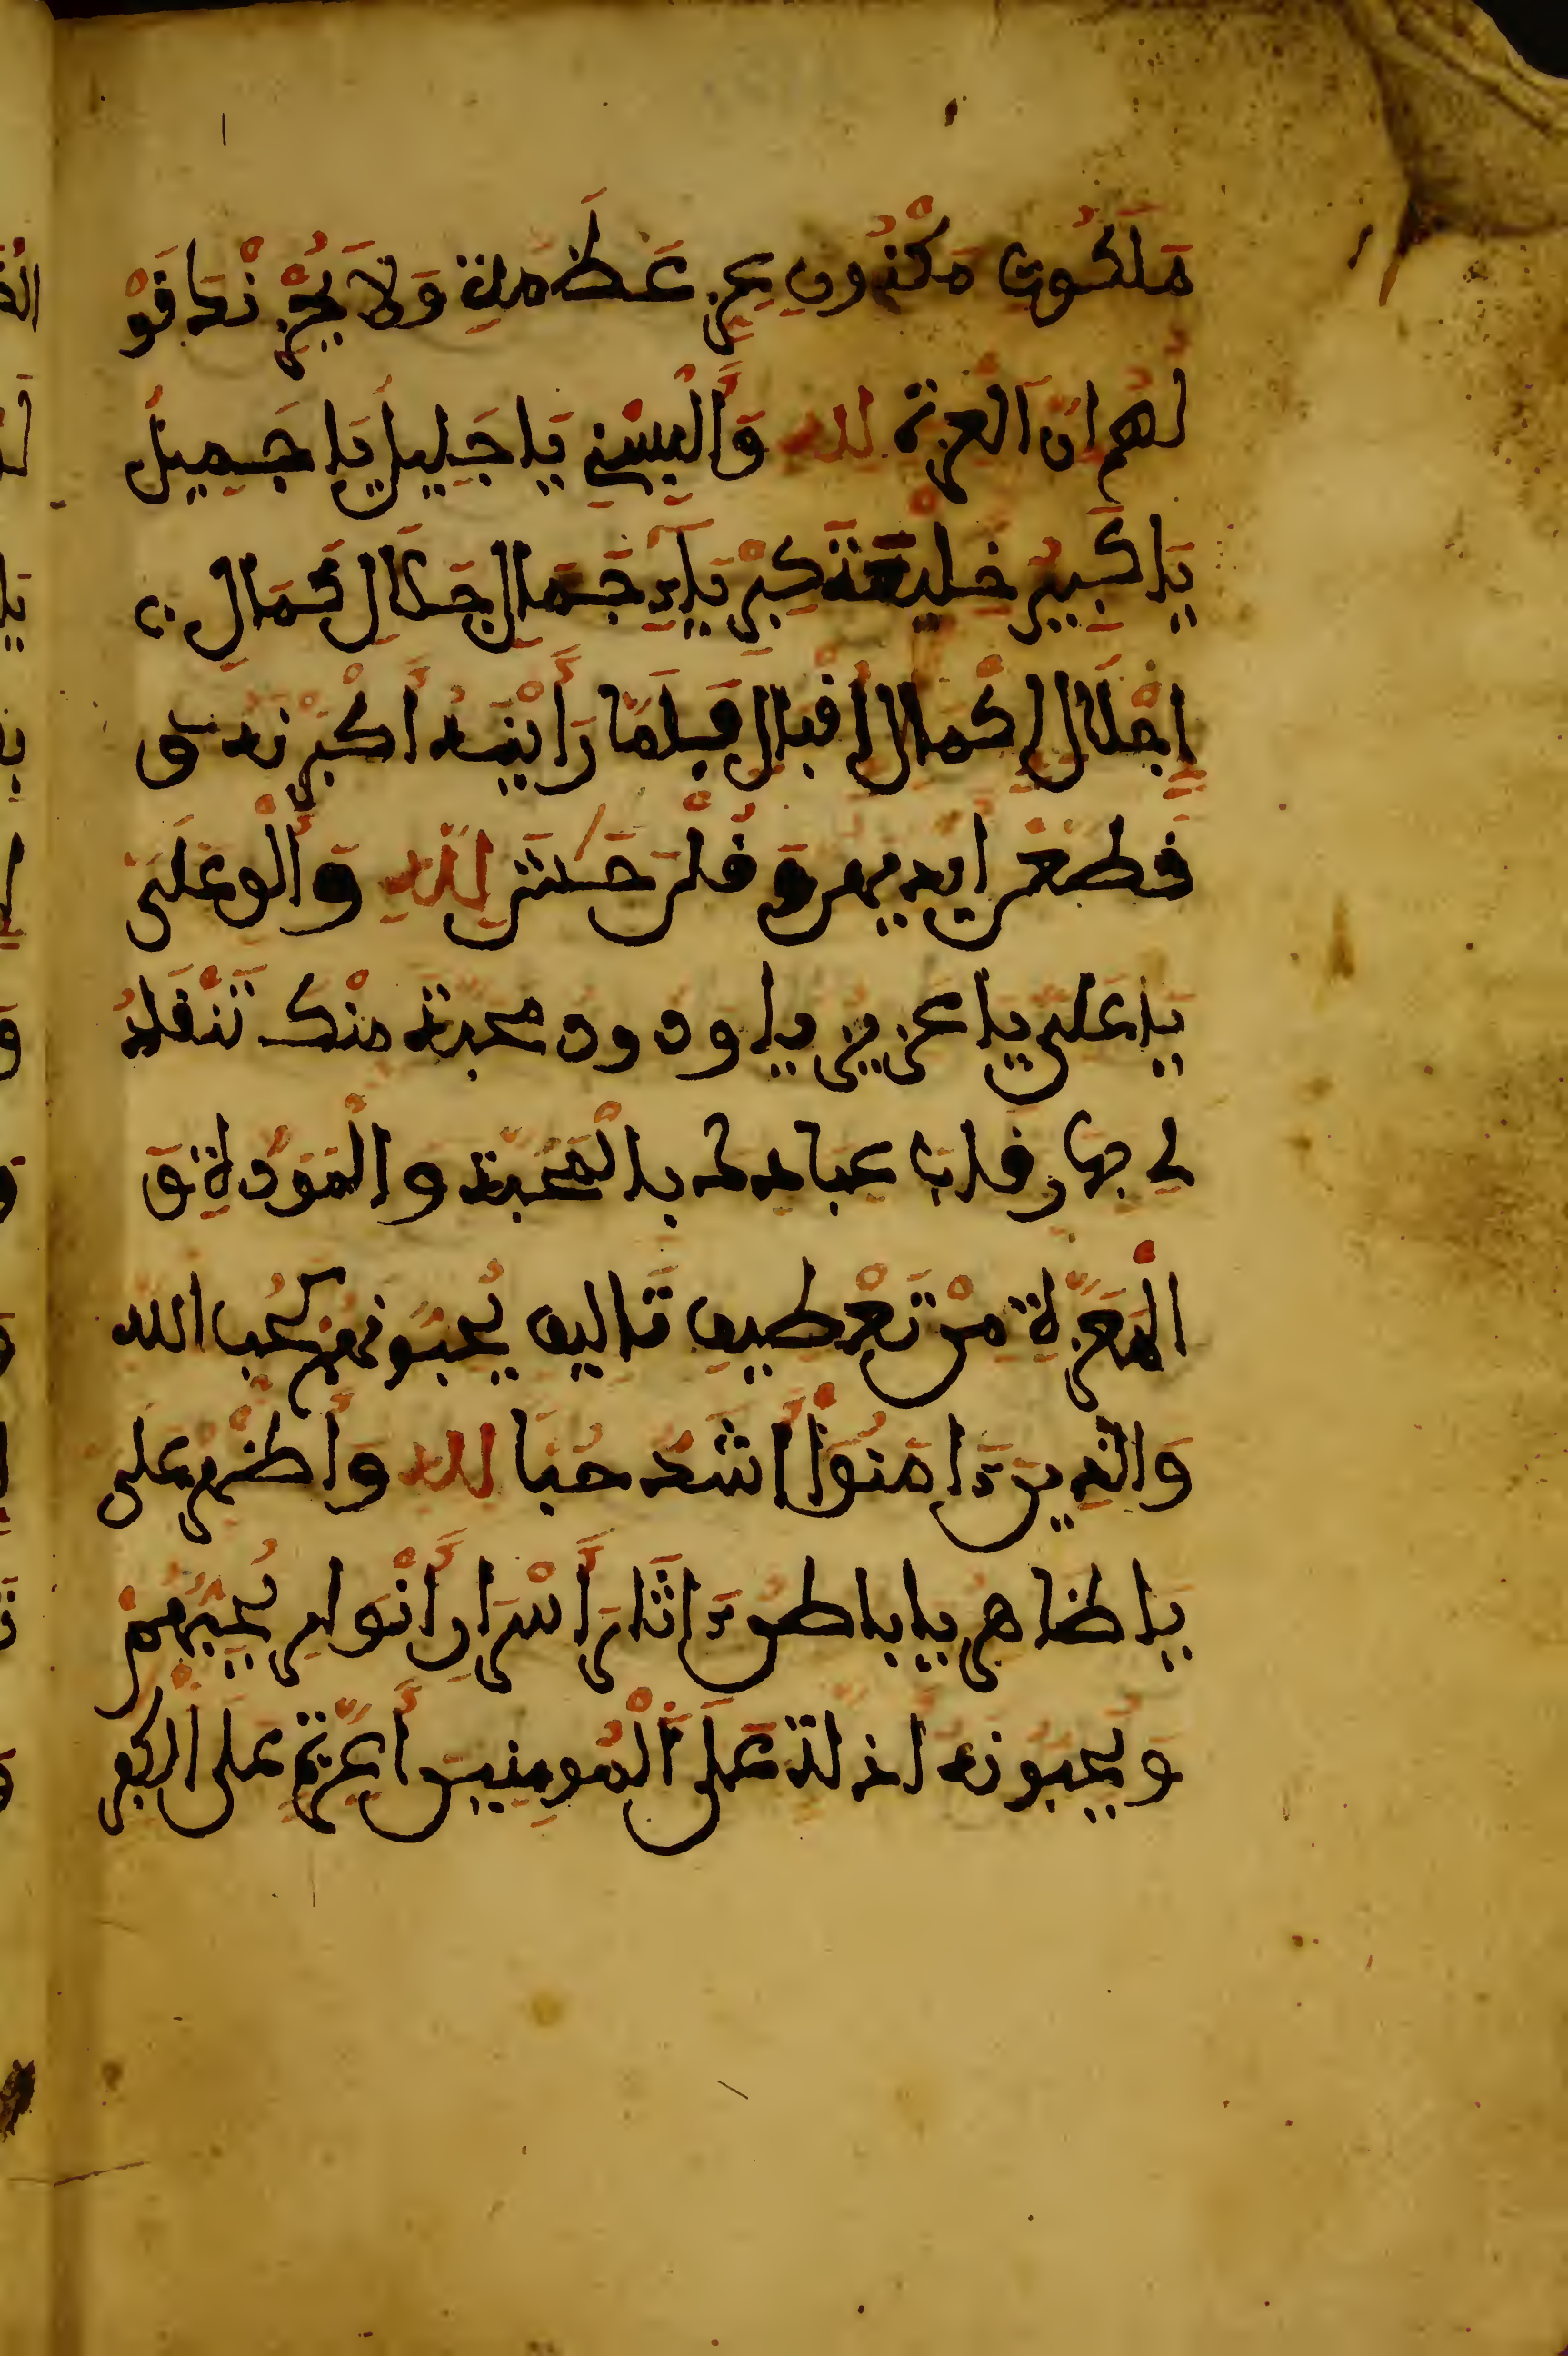 مَلَكُوتِ مَكْنُونِ عِزِّ عَظَمَةِ وَلَا يُحْزِنْكَ قَوْ
لُهُمْ إِنَّ الْعِزَّةَ لله وَأَلْبِسْنِي يَا جَلِيلُ يَا جَمِيلُ
يَا كَبِيرُ خِلْعَةَ كِبْرِيَاءِ جَمَالِ جَلَالِ كَمَالِ
إِجْلَالِ إِكْمَالِ إِقْبَالِ فَلَمَّا رَأَيْنَهُ أَكْبَرْنَهُ وَ
قَطَّعْنَ أَيْدِيَهُنَّ وَقُلْنَ حَاشَ لِلَّهِ وَأَلْقِ عَلَيَّ
يَا عَلِي يَا عَزِيزُ يَا وَدُودُ مَحَبَّةً مِنْكَ تَنْقَادُ
لِي بِهَا قلوب عِبَادِكَ بِالْمَحَبَّةِ وَالْمَوَدَّةِ وَ
الْمَعَزَّةِ مِنْ تَعْطِيفِ تَأْلِيفِ يُحِبُّونَهُمْ كَحُبِّ الله
وَالَّذِينَ ءَامَنُوا أَشَدُّ حُبًّا لله وَأَظْهِرْ عَلَى
يَا ظَاهِرُ يَا بَاطِنُ ءَاثَارَ أَسْرَارِ أَنْوَارِ يُحِبُّهُمْ
وَيُحِبُّونَهُ أَذِلَّةٍ عَلَى الْمُومِنِينَ أَعِزَّةٍ عَلَى الْكٰفِرِ